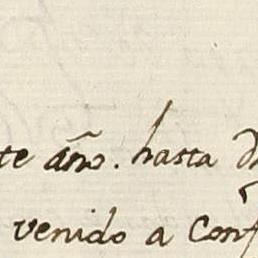 te año. hasta
venido a Con